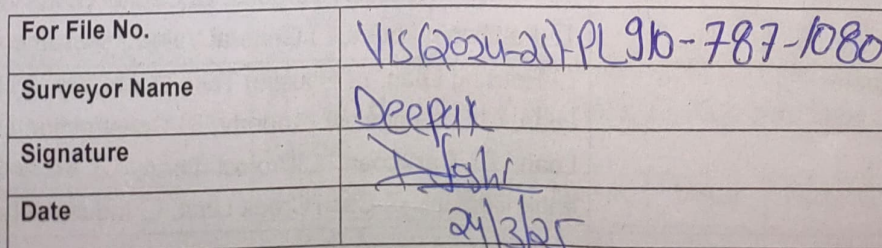 For File No. VIS(2024-25)-PL910-787-1080
Surveyor Name Deepak
Signature
Date 24/3/25